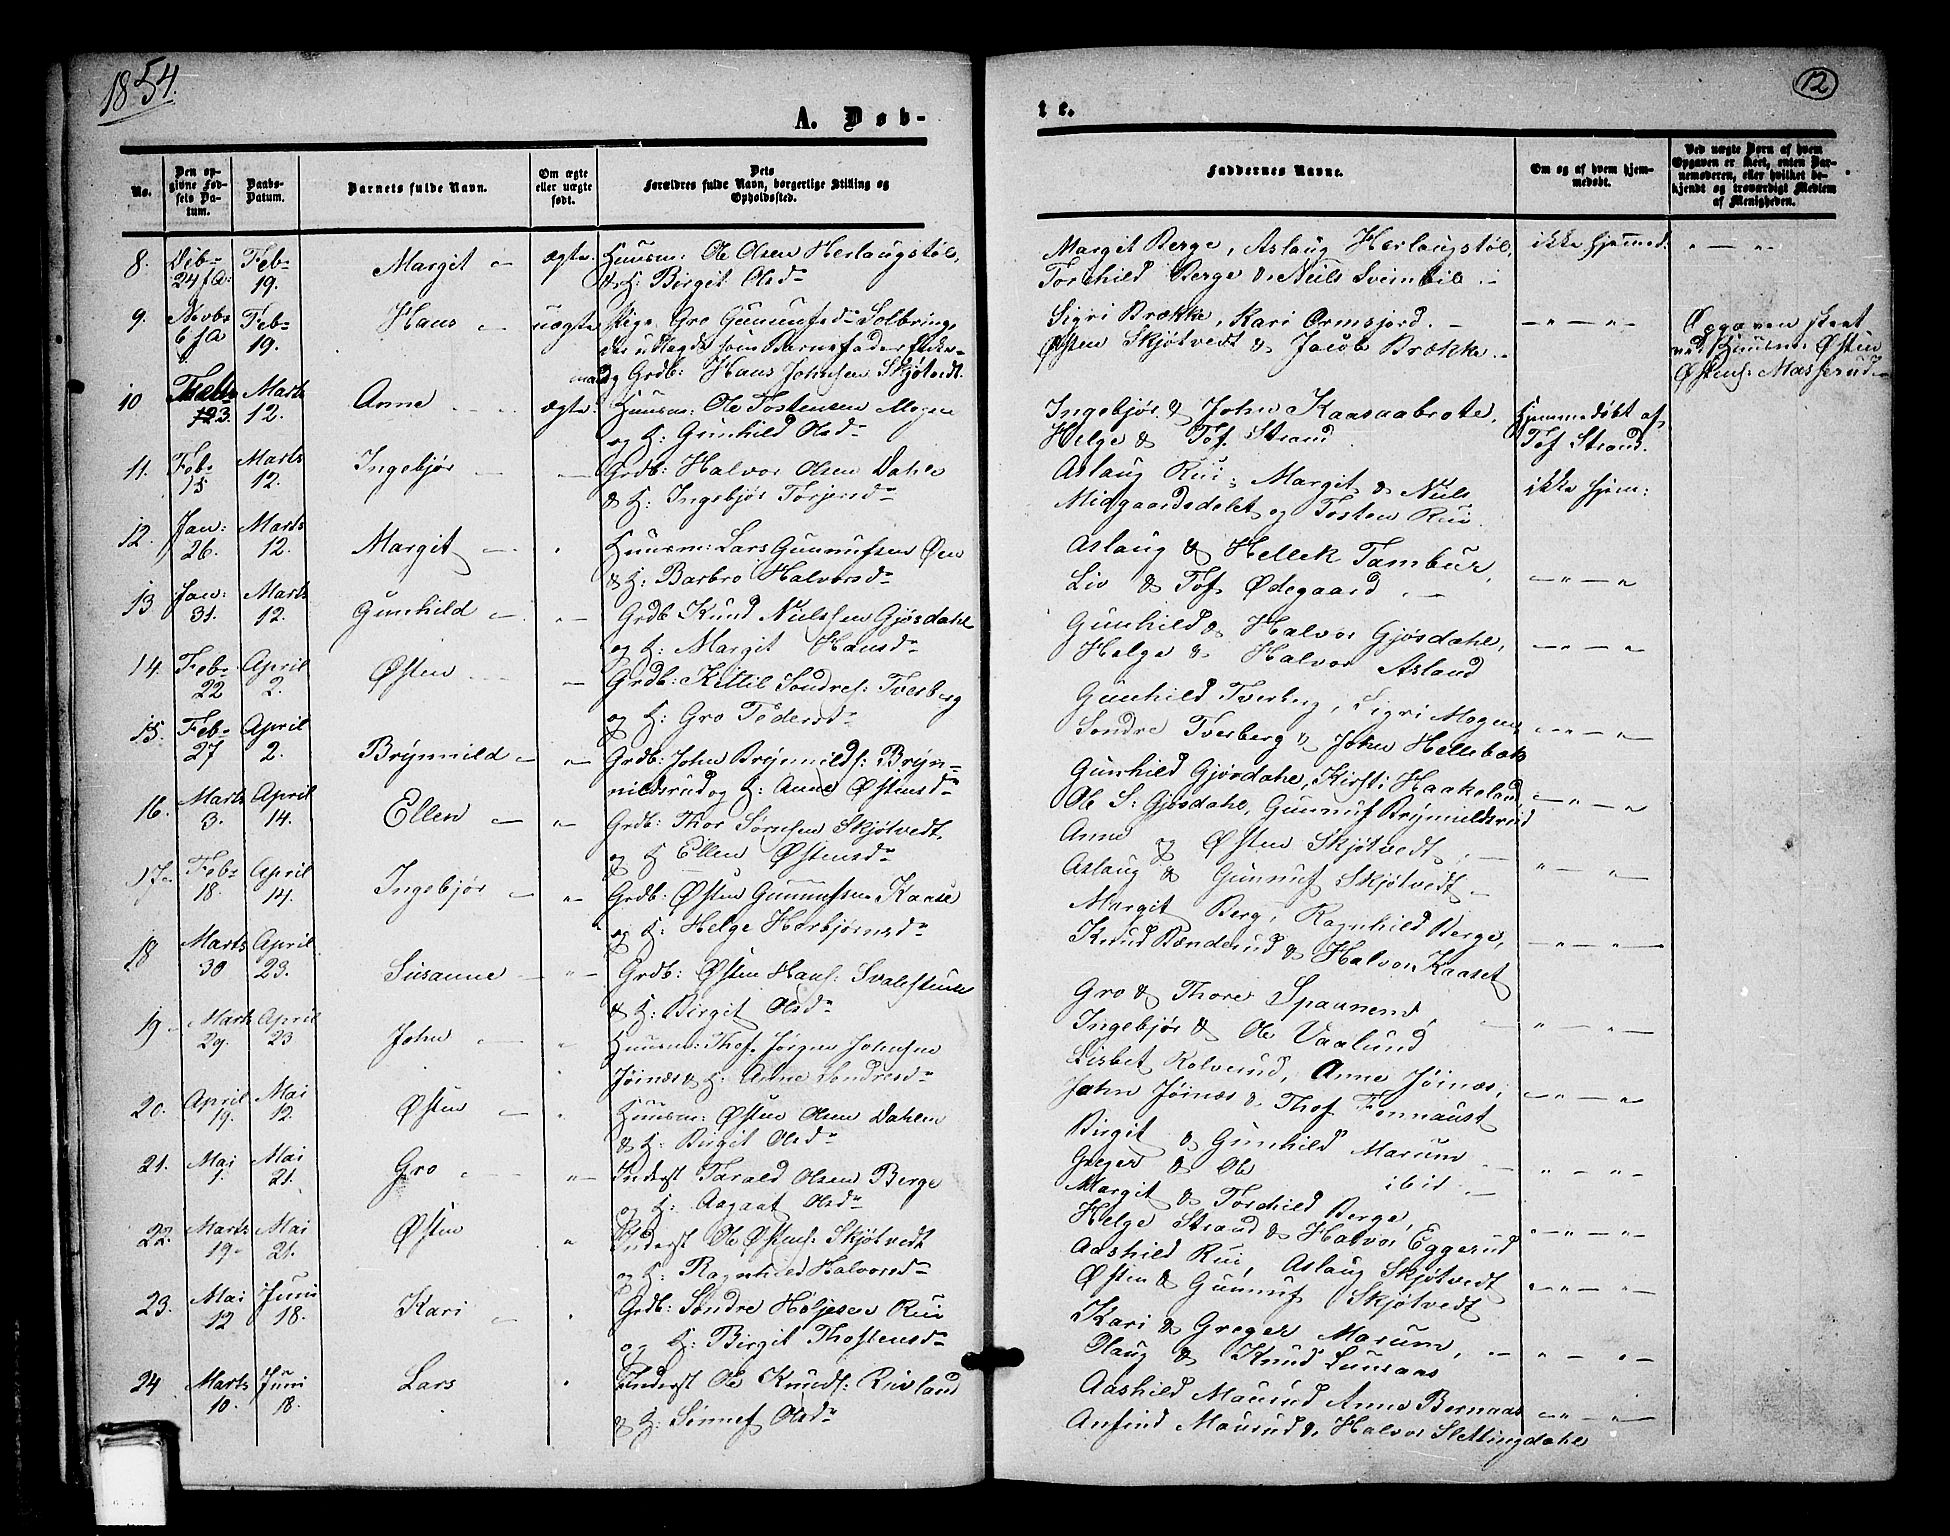 1854.
12
A. Døb-
te.
No.
Den op-
givne Fød-
sels Da-
tum.
Daabs-
Datum.
Barnets fulde Navn.
Om ægte
eller uægte
født.
Dets
Forældres fulde Navn, borgerlige Stilling og
Opholdssted.
Faddernes Navne.
Om og af hvem hjem-
medøbt.
Ved uægte Børn af hvem
Opgaven er skeet, enten Bar-
nemoderen, eller hvilket be-
kjendt og troværdigt Medlem
af Menigheden.
8. Dcb- 24 f.A. Feb- 19. Margit - ægte. Huusm: Ole Olsen Herlaugstøl,
& H: Birgit Olsd-
Margit Berge, Aslaug Herlaugstøl, ikke hjemmed. " - "
Torchild Berge & Niels Sveinbil -
9. Novb- 6 f.A. Feb- 19. Hans - uægte Pige Gro Gunnufsd- Solbring,
der udlagde som Barnefader Lidse-
mand Grdb: Hans Johnsen Skjøtvedt.
Sigri Brække, Kari Ormsjord. - - " - " -
Østen Skjøtvedt & Jacob Brække.
Opgaven skeet
ved Huusm: Østen
Østens: Masserud -
10 Feb- 23. Marts 12. Anne - - ægte. Huusm: Ole Tostensen Mogen
og H: Gunhild Olsd-
Ingebjør & John Kaasaabrote, Hjemmedøbt af
Helge & Tof. Strand. Tof Strand.
11. Feb- 15 Marts 12. Ingebjør - - Grdb: Halvor Olsen Dahle
& H: Ingebjør Torjersd-
Aslaug Rui, Margit & Niels ikke hjem:
Midgaardsdelet og Tosten Rui.
12. Jan: 26. Marts 12. Margit - " Huusm: Lars Gunnufsen Øen
& H: Barbro Halvorsd-
Aslaug & Hellek Tambur,
Liv & Tof. Ødegaard. - - " - "
13 Jan: 31. Marts 12. Gunhild - " - Grdb Knud Nielssen Gjøsdahl
og H: Margit Hansd-
Gunhild & Halvor Gjøsdahl,
Helge & Halvor Asland - " - "
14. Feb- 22 April 2. Østen - - - Grdb: Kittil Sondres: Tverberg
og H: Gro Pedersd-
Gunhild Tverberg, Sigri Mogen,
Sondre Tverberg & John Hellebæk - " - " -
15. Feb- 27 April 2. Brynnild - " - Grdb: John Brynnilds: Bryn-
nildsrud og H: Anne Østensd-
Gunhild Gjøsdahl, Kirsti Haakeland,
Ole S: Gjøsdahl, Gunnuf Brynnildsrud - " - "
16. Marts 3. April 14. Ellen - " - Grdb: Thor Sørensen Skjøtvedt,
og H Ellen Østensd-
Anne og Østen Skjøtvedt, -
Aslaug & Gunnuf Skjøtvedt - " - " -
17. Feb- 18. April 14. Ingebjør - " - Grdb: Østen Gunnufsen Kaase
og H: Helge Herbjørnsd-
Margit Berg, Ragnhild Berge,
Knud Bænderud & Halvor Kaaset - " - " -
18 Marts 30 April 23. Susanne - " - Grdb: Østen Hans: Svalestuen
& H: Birgit Olsd-
Gro & Thore Spaanem,
Ingebjør & Ole Vaalund - " - " -
19 - Marts 29. April 23 John - " Huusm: Thof. Jørgen Johnsen
Jøinæs & H: Anne Sondresd-
Lisbet Kolverud, Anne Jøinæs,
John Jøinæs & Thof Fonnaust - " - "
20. April 19. Mai 12. Østen - " Huusm: Østen Olsen Dahlen
& H: Birgit Olsd-
Birgit & Gunhild Marum
Greger & Ole ibid. - " - " -
21. Mai 1. Mai 21. Gro - " - Inderst Tarald Olsen Berge
og H: Aagaat Olsd-
Margit & Torchild Berge,
Helge Strand & Halvor Eggerud - " - " -
22. Marts 19- Mai 21. Østen " Inderst Ole Østens: Skjøtvedt
og H: Ragnhild Halvorsd-
Aashild Rui, Aslaug Skjøtvedt
Østen & Gunnuf Skjøtvedt - " - " -
23. Mai 12 Juni 18. Kari - " Grdb: Søndre Høljesen Rui
og H: Birgit Thostensd-
Kari & Greger Marum,
Olaug & Knud Lunsaas - " - " -
24 Marts 10. Juni 18. Lars " Inderst Ole Knuds: Buvland
& H: Sønnef Olsd-
Aashild Maurud Anne Bernaas - " - " -
Anfind Maurud & Halvor Slettingdahl